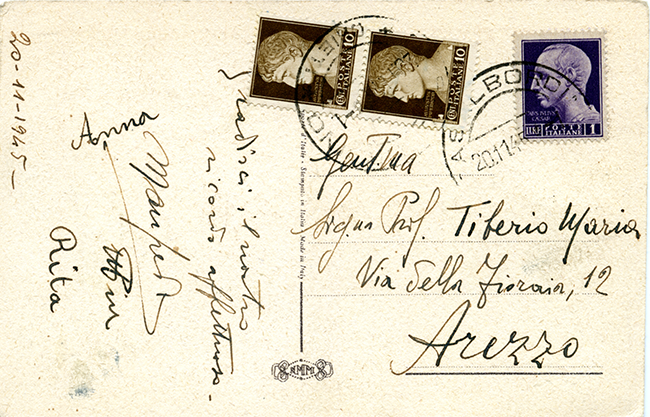 20-11-1945-
Gradisci il nostro
ricordo affettuoso-
Anna
Manfredi
Rita
Gent.ma
Sig.na Prof. Tiberio Maria
Via della Fioraia, 12
Arezzo
CENT. POSTE ITALIANE 10
CENT. POSTE ITALIANE 10
POSTE ITALIANE
LIRE 1
CASTELBOLOGNESE
20.11.4
Stampato in Italia - Made in Italy
NMM